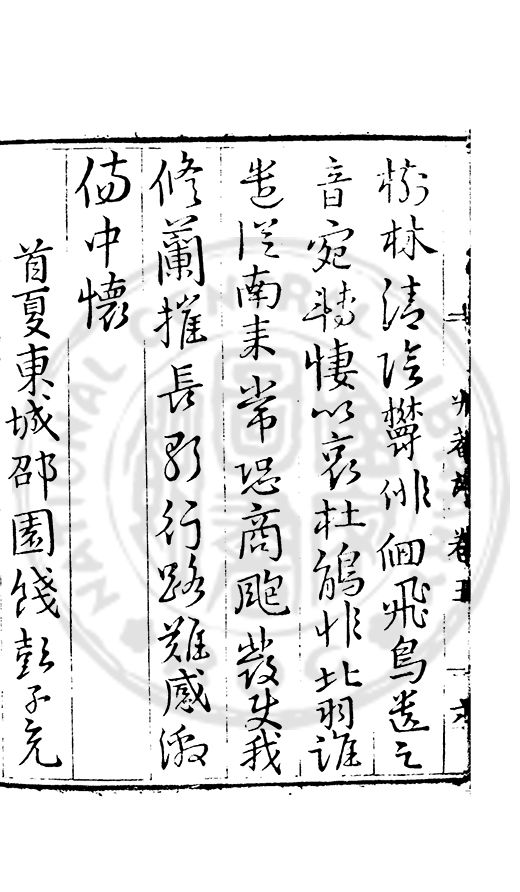 樹林清陰鬱徘徊飛鳥遺之
音宛轉悽以哀杜鵑非北羽誰
遣從南来常恐商飈發使我
修蘭摧長歌行路難感激
傷中懷
首夏東城邵園餞彭子充
菴詩卷五